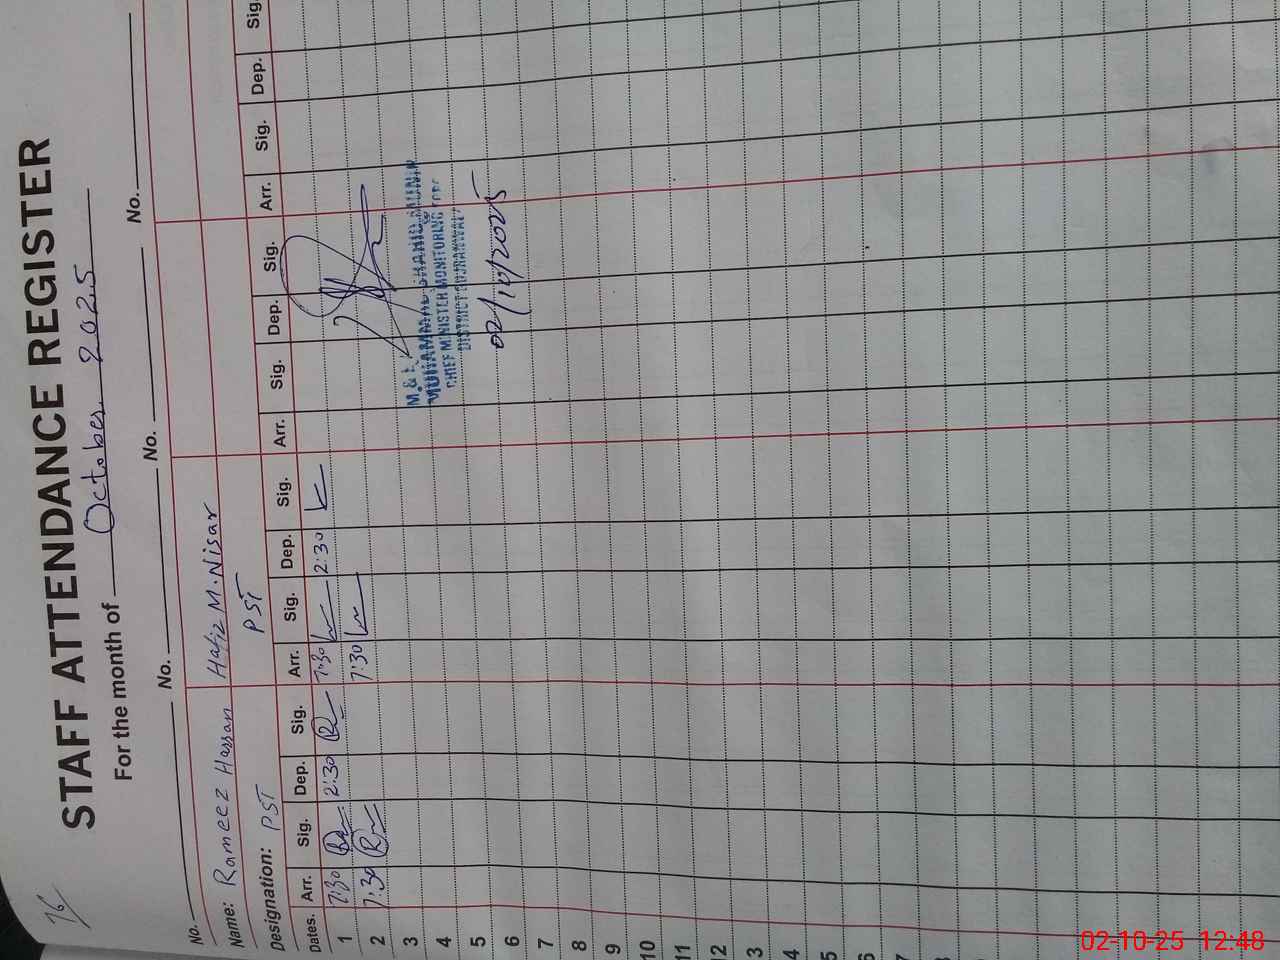 76
STAFF ATTENDANCE REGISTER
For the month of October 2025
No. No. No. No.
Name: Rameez Hassan Hafiz M. Nisar
Designation: PST PST
Dates. Arr. Sig. Dep. Sig. Arr. Sig. Dep. Sig. Arr. Sig. Dep. Sig. Arr. Sig. Dep. Sig
1 7:30 2:30 7:30 2:30
2 7:30 7:30
3
4
5
6
7
8
9
10
11
12
3
4
5
6
7
MUHAMMAD SHAHID
CHIEF MINISTER MONITORING
DISTRICT GUJRANWALA
02/10/2025
02-10-25 12:48